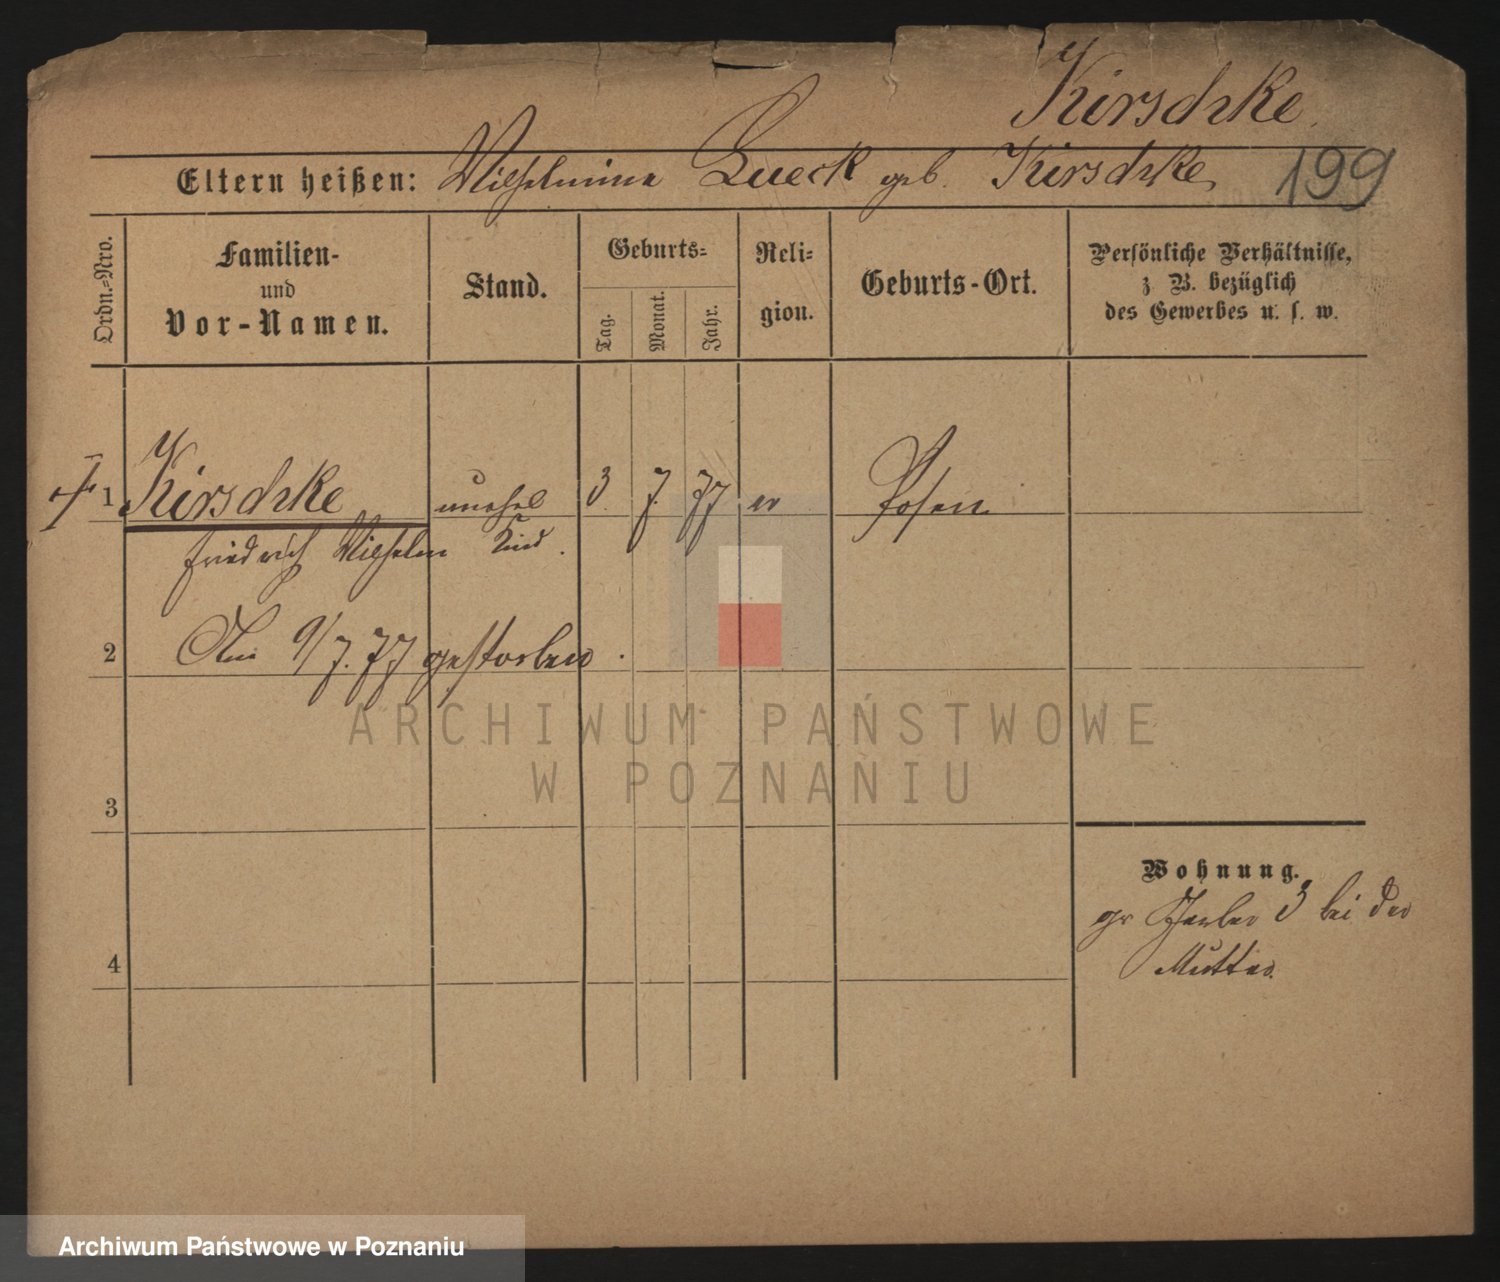 Kirschke.
Eltern heißen: Wilhelmine Lueck geb. Kirschke
199
Ordn.=Nro.
Familien-
und
Vor-Namen.
Stand.
Geburts=
Tag.
Monat.
Jahr.
Reli=
gion.
Geburts-Ort.
Persönliche Verhältnisse,
z. B. bezüglich
des Gewerbes u. s. w.
1 Kirschke unehel 3 7 77 ev Posen
Friedrich Wilhelm Kind.
2 Am 9/7. 77 gestorben.
3
4
Wohnung.
gr Gerber 3 bei der
Mutter.
ARCHIWUM PAŃSTWOWE
W POZNANIU
Archiwum Państwowe w Poznaniu